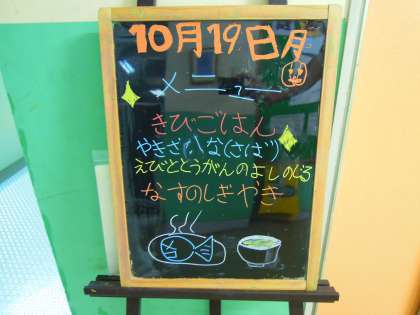 10月19日月
メニュー
きびごはん
やきざかな(さば)
えびととうがんのよしのじる
なすのしぎやき